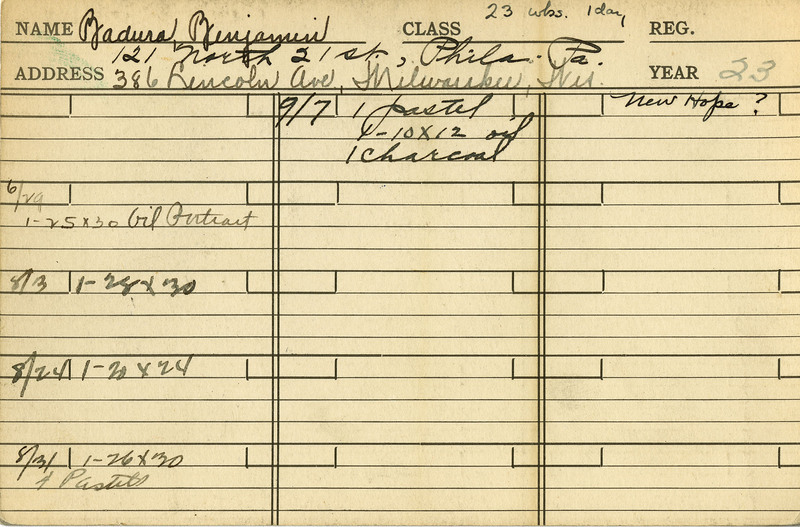 NAME Badura Benjamin CLASS 23 wks. 1 day REG.
121 North 21 st., Phila. Pa.
ADDRESS 386 Lincoln Ave, Milwaukee, Wis. YEAR 23
9/7 1 pastel New Hope ?
4-10x12 oil
1 charcoal
6/29
1-25x30 Oil Portrait
8/3 1-28x30
8/24 1-20x24
8/31 1-26x30
4 Pastels